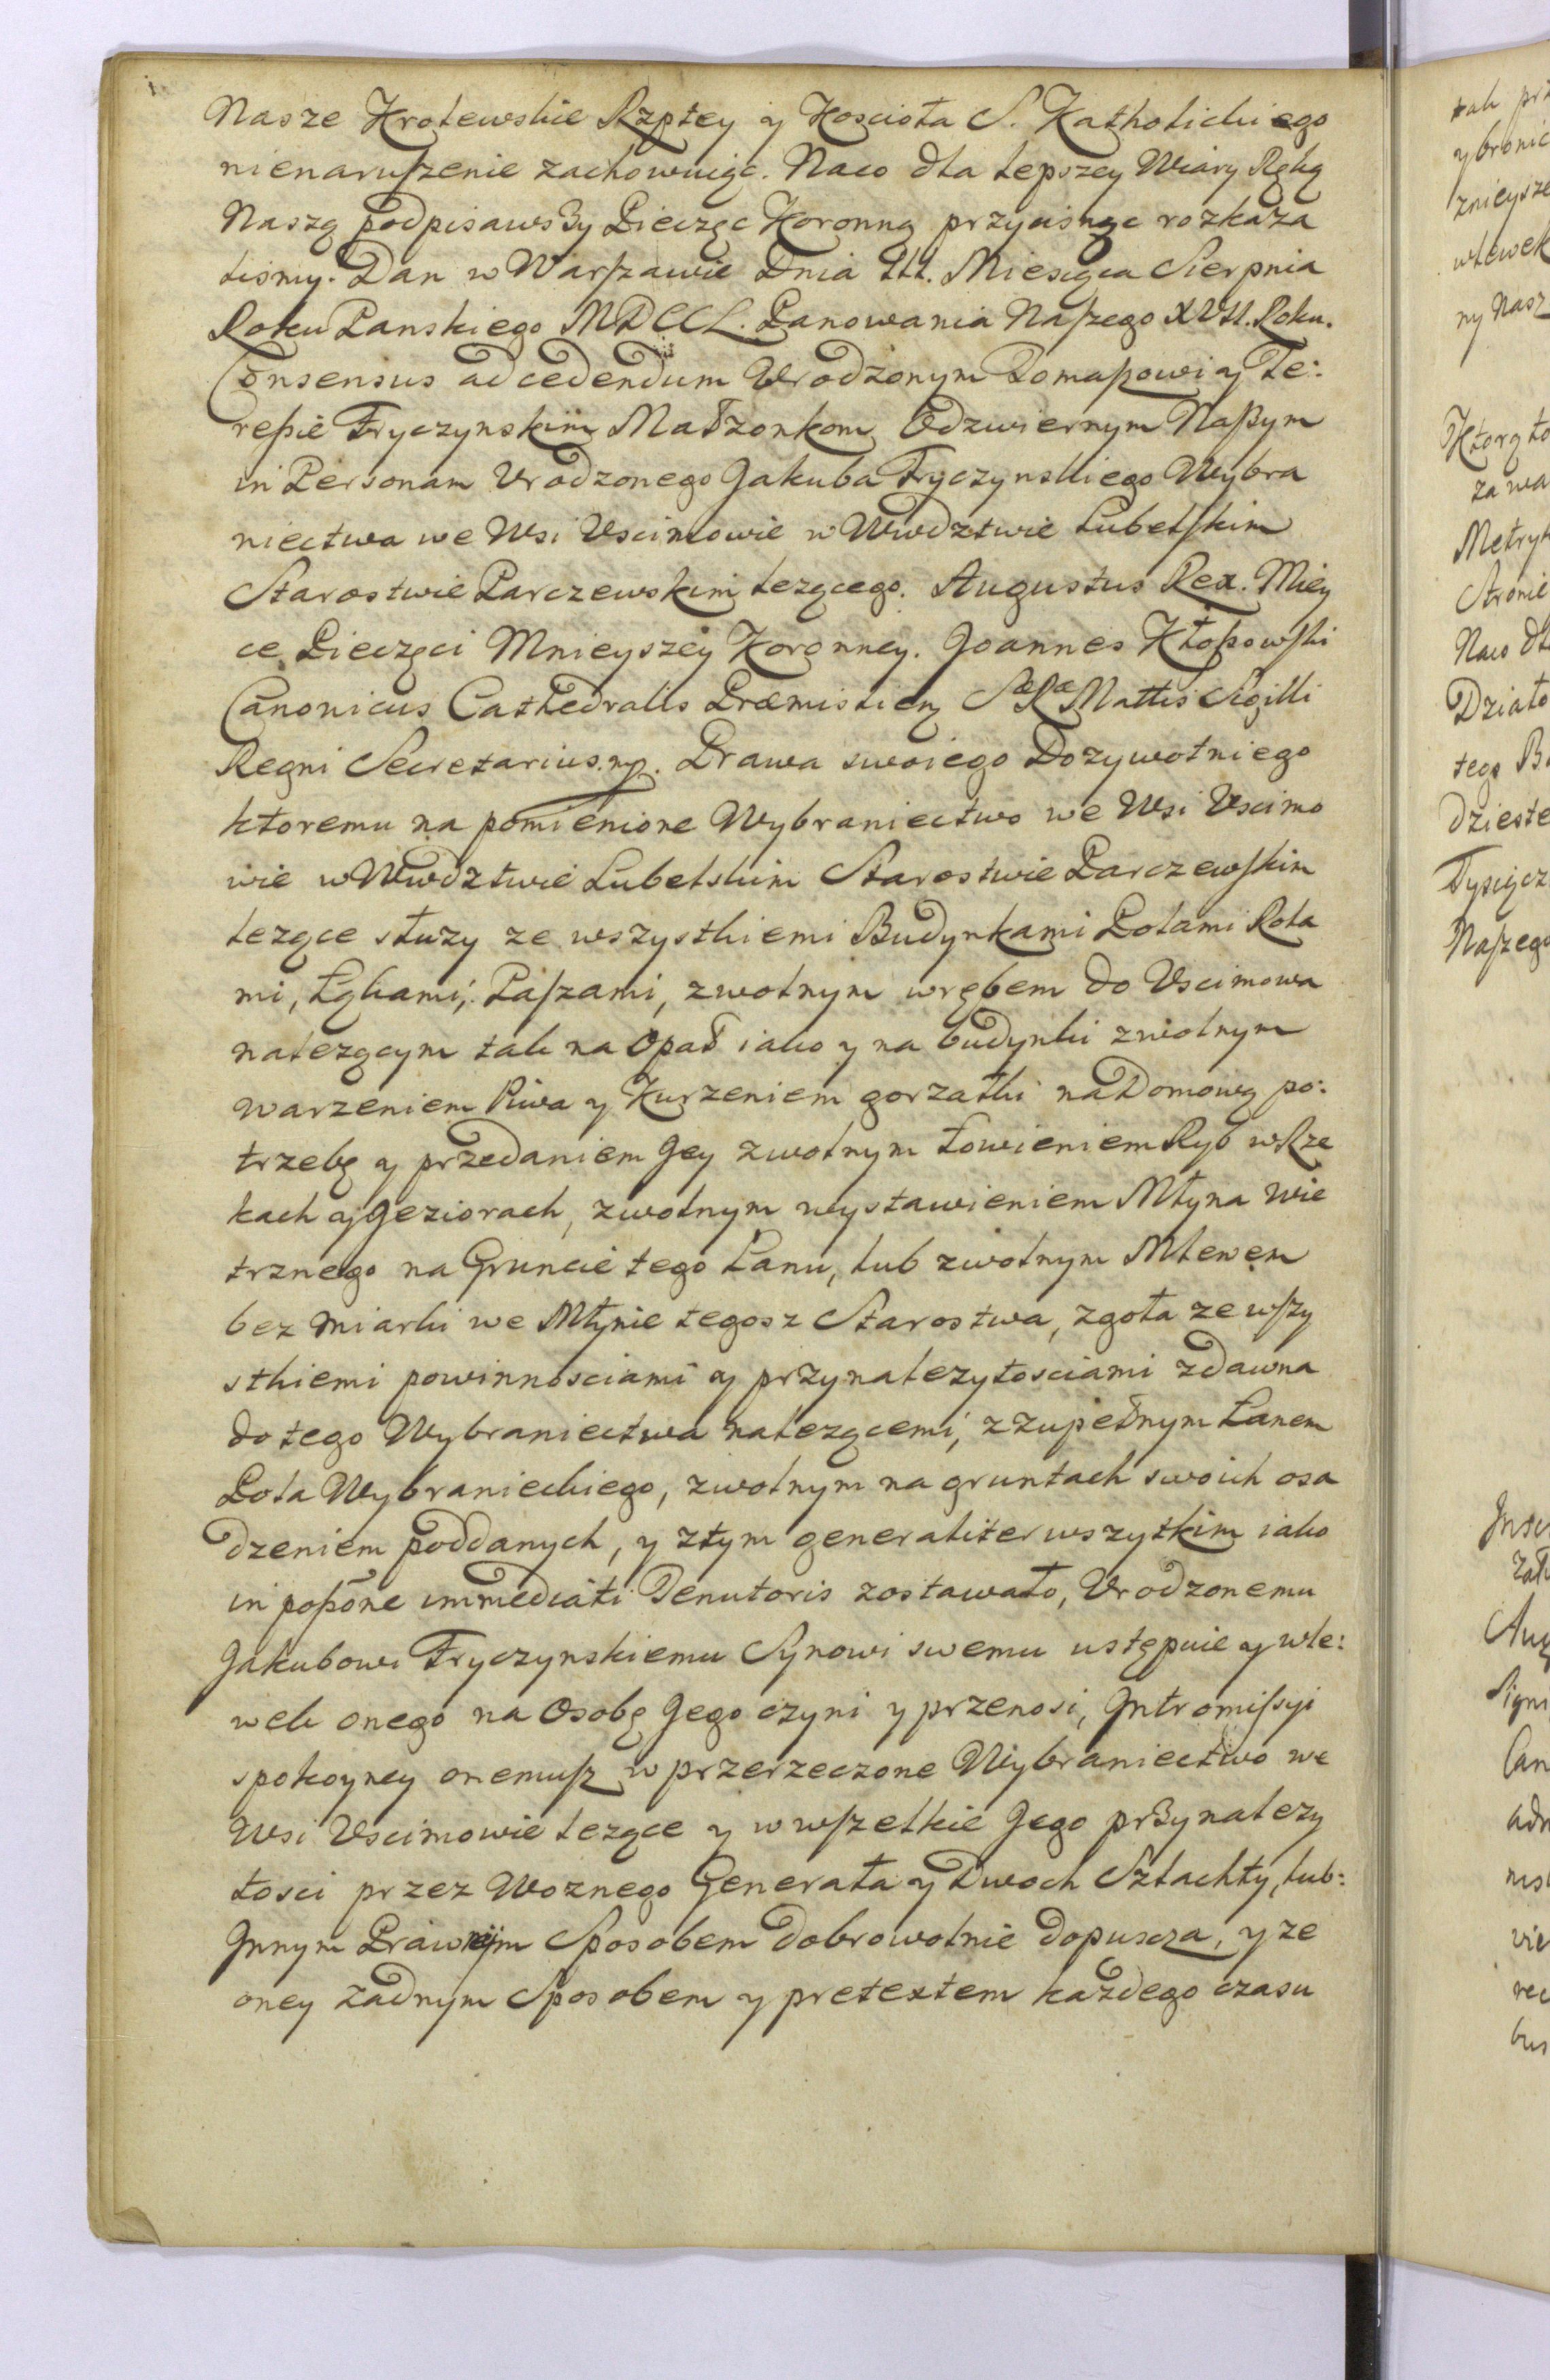 Nasze Krolewskie Rzptey y Kosciola S. Katholickiego
nienaruszenie zachowuiąc. Naco dla lepszey Wiary Ręką
Naszą podpisawszy Pieczęc Koronną przycisnąc rozkaza
lismy. Dan w Warszawie Dnia III. Miesiąca Sierpnia
Roku Panskiego MDCCL. Panowania Naszego XVII. Roku.
Consensus ad cedendum Urodzonym Tomaszowi y Te:
ressie Fryczynskim Małżonkom Odzwiernym Naszym
in Personam Urodzonego Jakuba Fryczynskiego Wybra
niectwa we Wsi Uscimowie w Wwdztwie Lubelskim
Starostwie Parczewskim lezącego. Augustus Rex. Miey
ce Pieczęci Mnieyszey Koronney. Joannes Kłossowski
Canonicus Cathedralis Præmislien SæRæ Mattis Sigilli
Regni Secretarius. mp. Prawa swoiego Dozywotniego
ktoremu na pomienione Wybraniectwo we Wsi Uscimo
wie w Wwdztwie Lubelskim Starostwie Parczewskim
lezące słuzy ze wszystkiemi Budynkami Polami Rola
mi, Łąkami, Paszami, zwolnym wrębem do Uscimowa
nalezącym tak na Opał iako y na budynki zwolnym
warzeniem Piwa y Kurzeniem gorzałki na Domową po:
trzebę y przedaniem Jey zwolnym łowieniem Ryb w Rze
kach y Jeziorach, zwolnym wystawieniem Młyna Wie
trznego na Gruncie tego Łanu, lub zwolnym Mlewem
bez miarki we Młynie tegosz Starostwa, zgoła ze wszy
stkiemi powinnosciami y przynalezytosciami zdawna
do tego Wybraniectwa nalezącemi, z zupełnym Łanem
Pola Wybranieckiego, zwolnym na gruntach swoich osa
dzeniem poddanych, y ztym generaliter wszytkim iako
in possone immediati Tenutoris zostawało, Urodzonemu
Jakubowi Fryczynskiemu Synowi swemu ustępuie y wle:
wek onego na Osobę Jego czyni y przenosi, Intromissyi
spokoyney onemusz w przerzeczone Wybraniectwo we
Wsi Uscimowie lezące y w wszelkie Jego przynalezy
tosci przez Woznego Generała y Dwoch Szlachty, lub:
Innym Prawnym Sposobem dobrowolnie dopuscza, y ze
oney żadnym Sposobem y pretextem każdego czasu